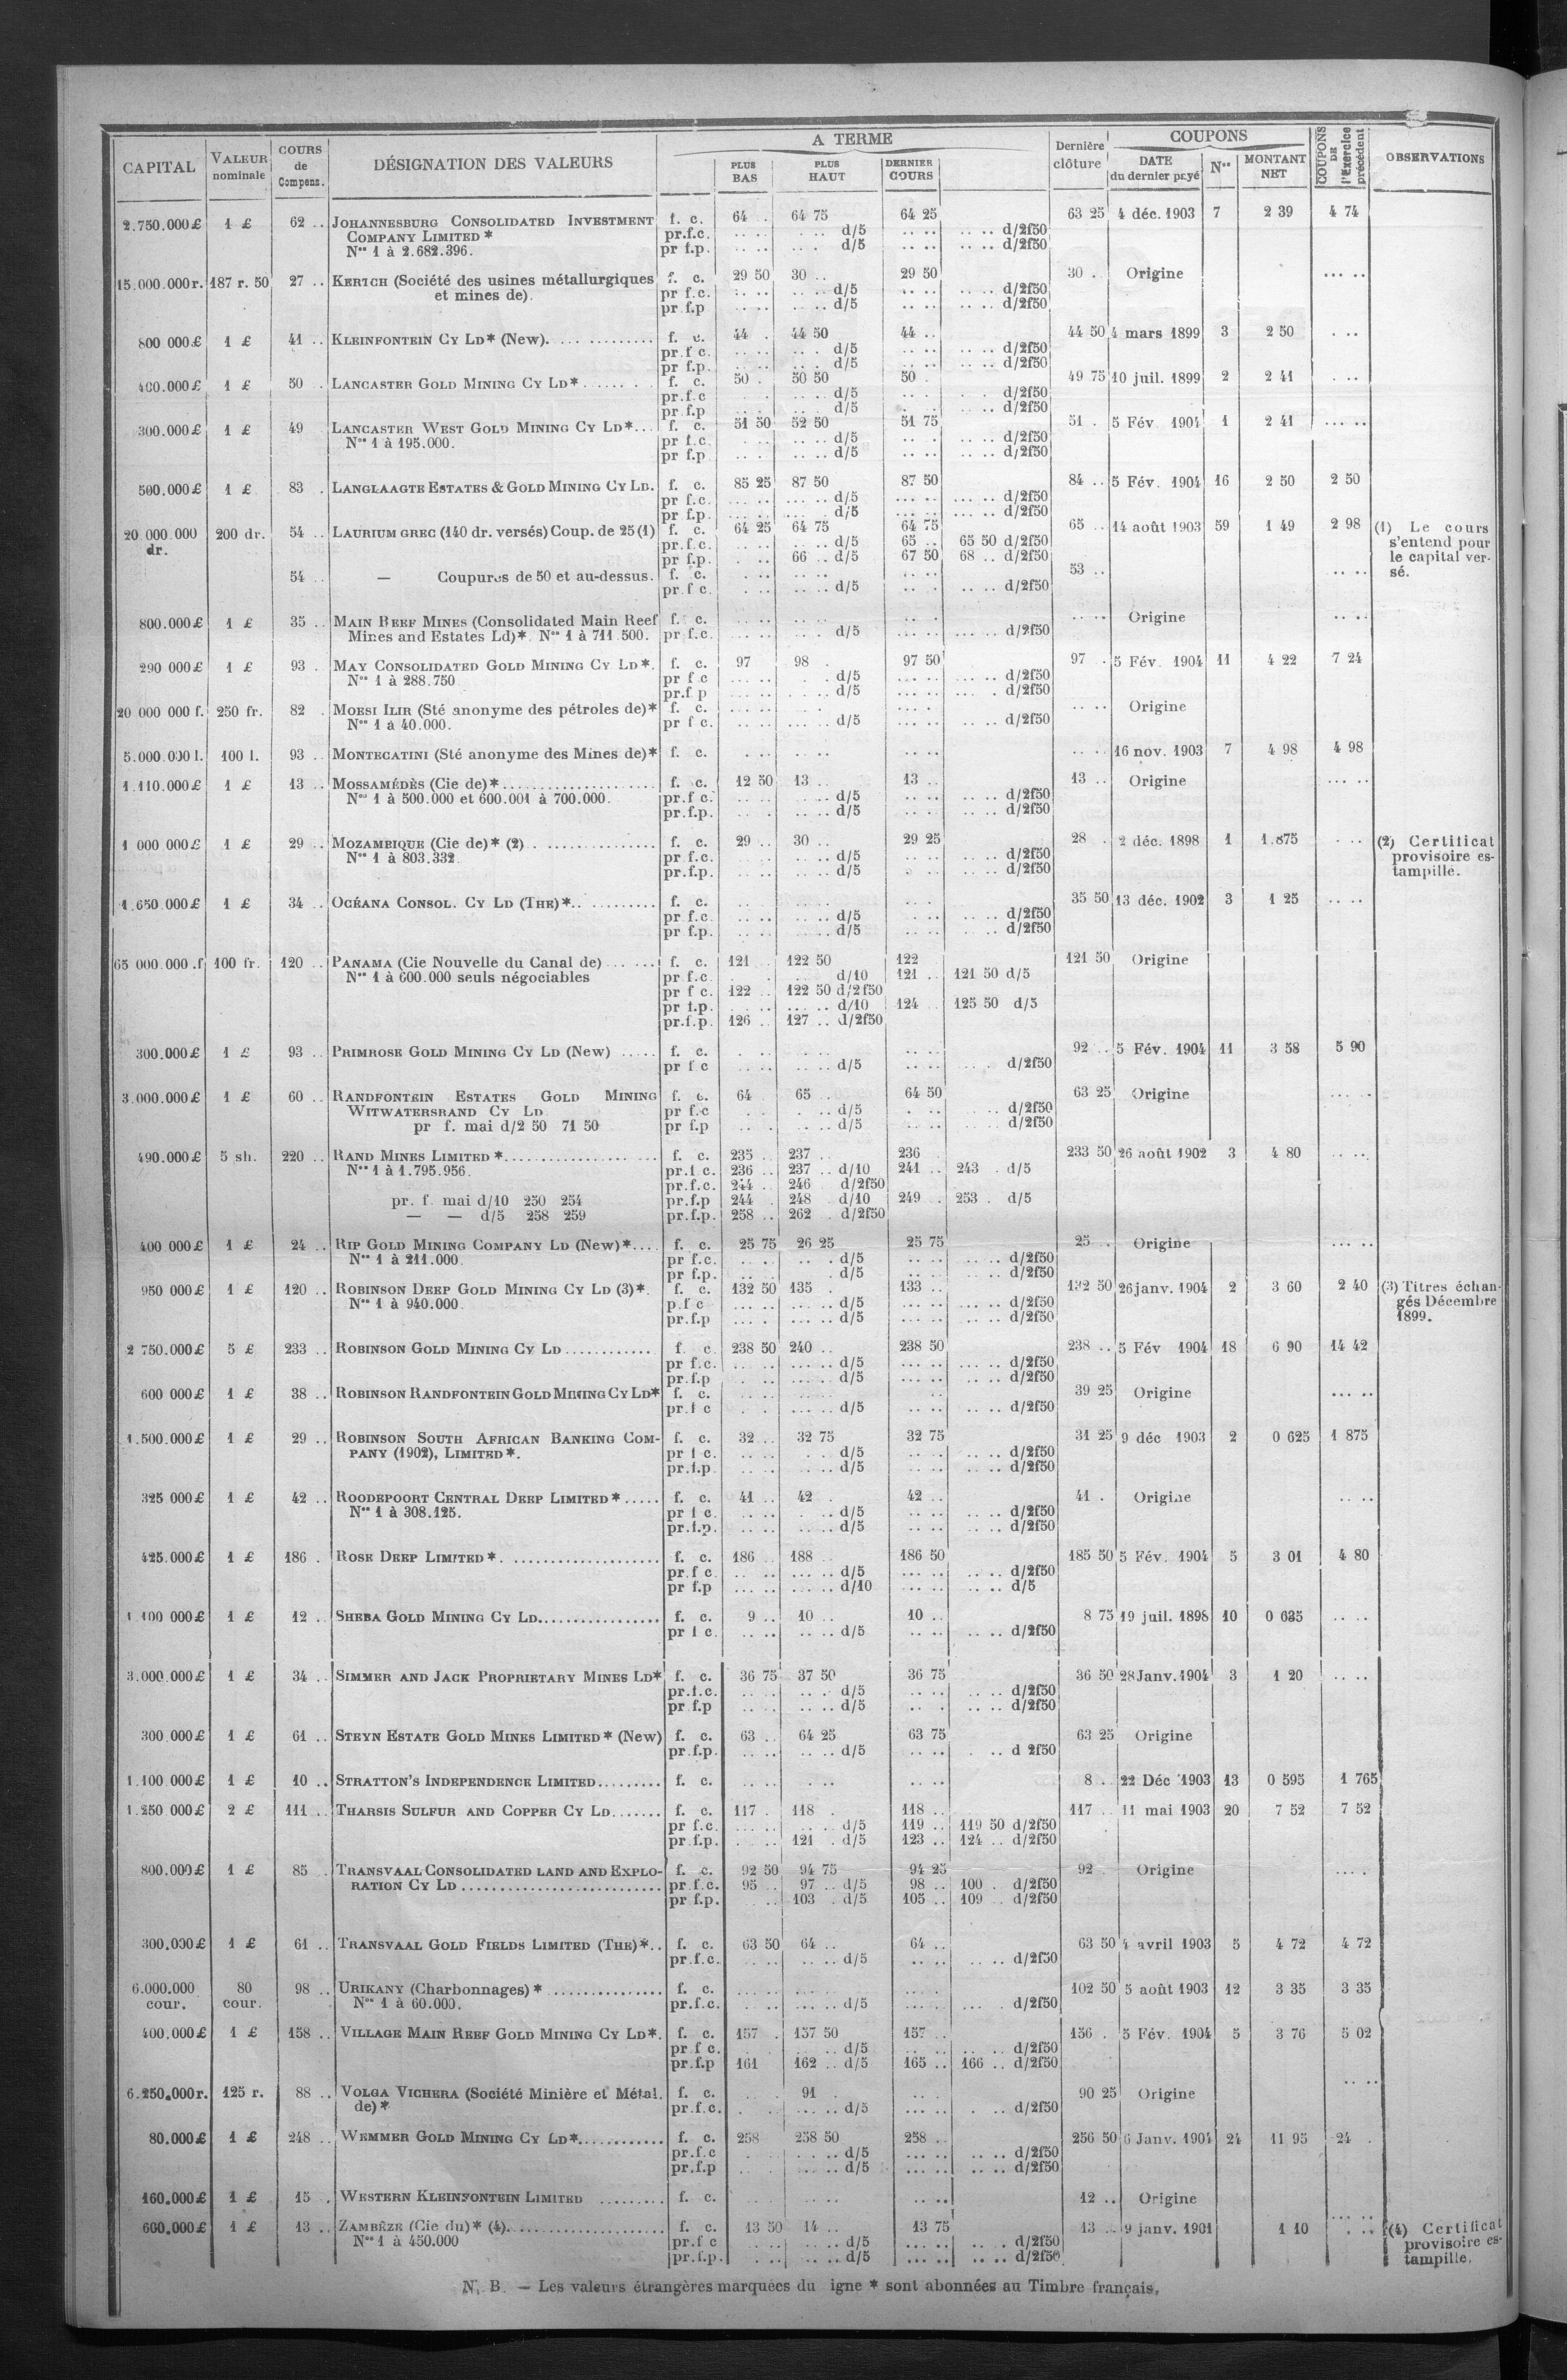 CAPITAL VALEUR nominale COURS de Compens. DÉSIGNATION DES VALEURS A TERME PLUS BAS PLUS HAUT DERNIER COURS Dernière clôture COUPONS DATE du dernier payé Nos MONTANT NET COUPONS DE l'Exercice précédent OBSERVATIONS
2.750.000£ 1 £ 62 .. JOHANNESBURG CONSOLIDATED INVESTMENT f. c. 64 .. 64 75 64 25 63 25 4 déc. 1903 7 2 39 4 74
COMPANY LIMITED * pr.f.c. d/5 d/2f50
Nos 1 à 2.682.396. pr f.p. d/5 d/2f50
15.000.000r. 187 r. 50 27 .. KERTCH (Société des usines métallurgiques f. c. 29 50 30 .. 29 50 30 . Origine
et mines de). pr f.c. d/5 d/2f50
pr f.p d/5 d/2f50
800 000£ 1 £ 41 .. KLEINFONTEIN CY LD* (New). f. c. 44 . 44 50 44 .. 44 50 4 mars 1899 3 2 50
pr.f c. d/5 d/2f50
pr f.p. d/5 d/2f50
400.000£ 1 £ 50 .. LANCASTER GOLD MINING CY LD* f. c. 50 . 50 50 50 . 49 75 10 juil. 1899 2 2 41
pr.f.c d/5 d/2f50
pr.f.p d/5 d/2f50
300.000£ 1 £ 49 LANCASTER WEST GOLD MINING CY LD*... f. c. 51 50 52 50 51 75 51 . 5 Fév. 1904 1 2 41
Nos 1 à 195.000. pr f.c. d/5 d/2f50
pr f.p d/5 d/2f50
500.000£ 1 £ 83 . LANGLAAGTE ESTATES & GOLD MINING CY LD. f. c. 85 25 87 50 87 50 84 .. 5 Fév. 1904 16 2 50 2 50
pr f.c. d/5 d/2f50
pr f.p. d/5 d/2f50
20.000.000 dr. 200 dr. 54 .. LAURIUM GREC (140 dr. versés) Coup. de 25 (1) f. c. 64 25 64 75 64 75 65 .. 14 août 1903 59 1 49 2 98 (1) Le cours
pr.f.c. d/5 65 .. 65 50 d/2f50 s'entend pour
pr f.p. 66 .. d/5 67 50 68 .. d/2f50 le capital ver-
54 .. — Coupures de 50 et au-dessus. f. c. 53 .. sé.
pr.f c. d/5 d/2f50
800.000£ 1 £ 35 .. MAIN REEF MINES (Consolidated Main Reef f. c. Origine
Mines and Estates Ld)*. Nos 1 à 711.500. pr f.c. d/5 d/2f50
290 000£ 1 £ 93 . MAY CONSOLIDATED GOLD MINING CY LD*. f. c. 97 98 . 97 50 97 . 5 Fév. 1904 11 4 22 7 24
Nos 1 à 288.750 pr f c d/5 d/2f50
pr.f p d/5 d/2f50
20 000 000 f. 250 fr. 82 . MOESI ILIR (Sté anonyme des pétroles de)* f. c. Origine
Nos 1 à 40.000. pr f c. d/5 d/2f50
5.000.000 l. 100 l. 93 .. MONTECATINI (Sté anonyme des Mines de)* f. c. 16 nov. 1903 7 4 98 4 98
1.110.000£ 1 £ 13 .. MOSSAMÉDÈS (Cie de)* f. c. 12 50 13 .. 13 .. 13 .. Origine
Nos 1 à 500.000 et 600.001 à 700.000. pr.f c. d/5 d/2f50
pr.f.p. d/5 d/2f50
1 000 000£ 1 £ 29 .. MOZAMBIQUE (Cie de)* (2) f. c. 29 .. 30 .. 29 25 28 . 2 déc. 1898 1 1.875 (2) Certificat
Nos 1 à 803.332 pr.f.c. d/5 d/2f50 provisoire es-
pr.f.p. d/5 d/2f50 tampillé.
1.650.000£ 1 £ 34 .. OCÉANA CONSOL. CY LD (THE)* f. c. 35 50 13 déc. 1902 3 1 25
pr f.c. d/5 d/2f50
pr f.p. d/5 d/2f50
65 000.000.f 100 fr. 120 .. PANAMA (Cie Nouvelle du Canal de) f. c. 121 .. 122 50 122 121 50 Origine
Nos 1 à 600.000 seuls négociables pr f.c. d/10 121 .. 121 50 d/5
pr f c. 122 .. 122 50 d/2f50
pr f.p. d/10 124 .. 125 50 d/5
pr.f.p. 126 .. 127 .. d/2f50
300.000£ 1 £ 93 .. PRIMROSE GOLD MINING CY LD (New) f. c. 92 .. 5 Fév. 1904 11 3 58 5 90
pr f c d/5 d/2f50
3.000.000£ 1 £ 60 .. RANDFONTEIN ESTATES GOLD MINING f. c. 64 65 .. 64 50 63 25 Origine
WITWATERSRAND CY LD pr f.c d/5 d/2f50
pr f. mai d/2 50 71 50 pr f.p d/5 d/2f50
490.000£ 5 sh. 220 .. RAND MINES LIMITED * f. c. 235 .. 237 .. 236 233 50 26 août 1902 3 4 80
Nos 1 à 1.795.956. pr.f c. 236 .. 237 .. d/10 241 .. 243 . d/5
pr.f.c. 244 .. 246 d/2f50
pr. f. mai d/10 250 254 pr.f.p 244 . 248 d/10 249 . 253 . d/5
— — d/5 258 259 pr.f.p. 258 .. 262 . d/2f50
400 000£ 1 £ 24 .. RIP GOLD MINING COMPANY LD (New)*.... f. c. 25 75 26 25 25 75 25 .. Origine
Nos 1 à 211.000. pr f.c. d/5 d/2f50
pr f.p. d/5 d/2f50
950 000£ 1 £ 120 .. ROBINSON DEEP GOLD MINING CY LD (3)*. f. c. 132 50 135 . 133 .. 132 50 26 janv. 1904 2 3 60 2 40 (3) Titres échan-
Nos 1 à 940.000. p.f c d/5 d/2f50 gés Décembre
pr.f.p d/5 d/2f50 1899.
2 750.000£ 5 £ 233 .. ROBINSON GOLD MINING CY LD f. c. 238 50 240 .. 238 50 238 .. 5 Fév 1904 18 6 90 14 42
pr f.c. d/5 d/2f50
pr.f.p d/5 d/2f50
600 000£ 1 £ 38 .. ROBINSON RANDFONTEIN GOLD MINING CY LD* f. c. 39 25 Origine
pr.f c d/5 d/2f50
1.500.000£ 1 £ 29 .. ROBINSON SOUTH AFRICAN BANKING COM- f. c. 32 .. 32 75 32 75 31 25 9 déc 1903 2 0 625 1 875
PANY (1902), LIMITED *. pr f c. d/5 d/2f50
pr.f.p d/5 d/2f50
325 000£ 1 £ 42 .. ROODEPOORT CENTRAL DEEP LIMITED * f. c. 41 .. 42 . 42 .. 41 . Origine
Nos 1 à 308.125. pr f c. d/5 d/2f50
pr.f.p. d/5 d/2f50
425.000£ 1 £ 186 . ROSE DEEP LIMITED *. f. c. 186 .. 188 .. 186 50 185 50 5 Fév. 1904 5 3 01 4 80
pr.f c. d/5 d/2f50
pr f.p d/10 d/5
1 100 000£ 1 £ 12 .. SHEBA GOLD MINING CY LD f. c. 9 .. 10 .. 10 .. 8 75 19 juil. 1898 10 0 635
pr f c. d/5 d/2f50
3.000.000£ 1 £ 34 .. SIMMER AND JACK PROPRIETARY MINES LD* f. c. 36 75 37 50 36 75 36 50 28 Janv. 1904 3 1 20
pr.f.c. d/5 d/2f50
pr f.p d/5 d/2f50
300.000£ 1 £ 61 .. STEYN ESTATE GOLD MINES LIMITED * (New) f. c. 63 .. 64 25 63 75 63 25 Origine
pr.f.p. d/5 d 2f50
1.100.000£ 1 £ 10 .. STRATTON'S INDEPENDENCE LIMITED f. c. 8 .. 22 Déc 1903 13 0 595 1 765
1.250 000£ 2 £ 111 .. THARSIS SULFUR AND COPPER CY LD f. c. 117 . 118 . 118 .. 117 .. 11 mai 1903 20 7 52 7 52
pr f.c. d/5 119 .. 119 50 d/2f50
pr.f.p. 121 . d/5 123 .. 124 .. d/2f50
800.000£ 1 £ 85 . TRANSVAAL CONSOLIDATED LAND AND EXPLO- f. c. 92 50 94 75 94 25 92 . Origine
RATION CY LD pr f.c. 95 .. 97 .. d/5 98 .. 100 . d/2f50
pr f.p. 103 . d/5 105 .. 109 .. d/2f50
300.000£ 1 £ 61 .. TRANSVAAL GOLD FIELDS LIMITED (THE)*.. f. c. 63 50 64 .. 64 .. 63 50 4 avril 1903 5 4 72 4 72
pr.f.c. d/5 d/2f50
6.000.000 cour. 80 cour. 98 .. URIKANY (Charbonnages) * f. c. 102 50 5 août 1903 12 3 35 3 35
Nos 1 à 60.000. pr.f.c. d/5 d/2f50
400.000£ 1 £ 158 .. VILLAGE MAIN REEF GOLD MINING CY LD*. f. c. 157 . 157 50 157 .. 156 . 5 Fév. 1904 5 3 76 5 02
pr f c. d/5 d/2f50
pr.f.p 161 162 .. d/5 165 .. 166 .. d/2f50
6.250.000r. 125 r. 88 .. VOLGA VICHERA (Société Minière et Métal. f. c. 91 . 90 25 Origine
de) * pr.f.c. d/5 d/2f50
80.000£ 1 £ 248 .. WEMMER GOLD MINING CY LD* f. c. 258 258 50 258 .. 256 50 6 Janv. 1904 24 11 95 24 .
pr.f.c d/5 d/2f50
pr.f.p d/5 d/2f50
160.000£ 1 £ 15 . WESTERN KLEINFONTEIN LIMITED f. c. 12 .. Origine
600.000£ 1 £ 13 .. ZAMBÈZE (Cie du)* (4) f. c. 13 50 14 .. 13 75 13 .. 9 janv. 1901 1 10 (4) Certificat
Nos 1 à 450.000 pr.f c d/5 d/2f50 provisoire es-
pr.f.p. d/5 d/2f50 tampille.
N. B. — Les valeurs étrangères marquées du igne * sont abonnées au Timbre français.